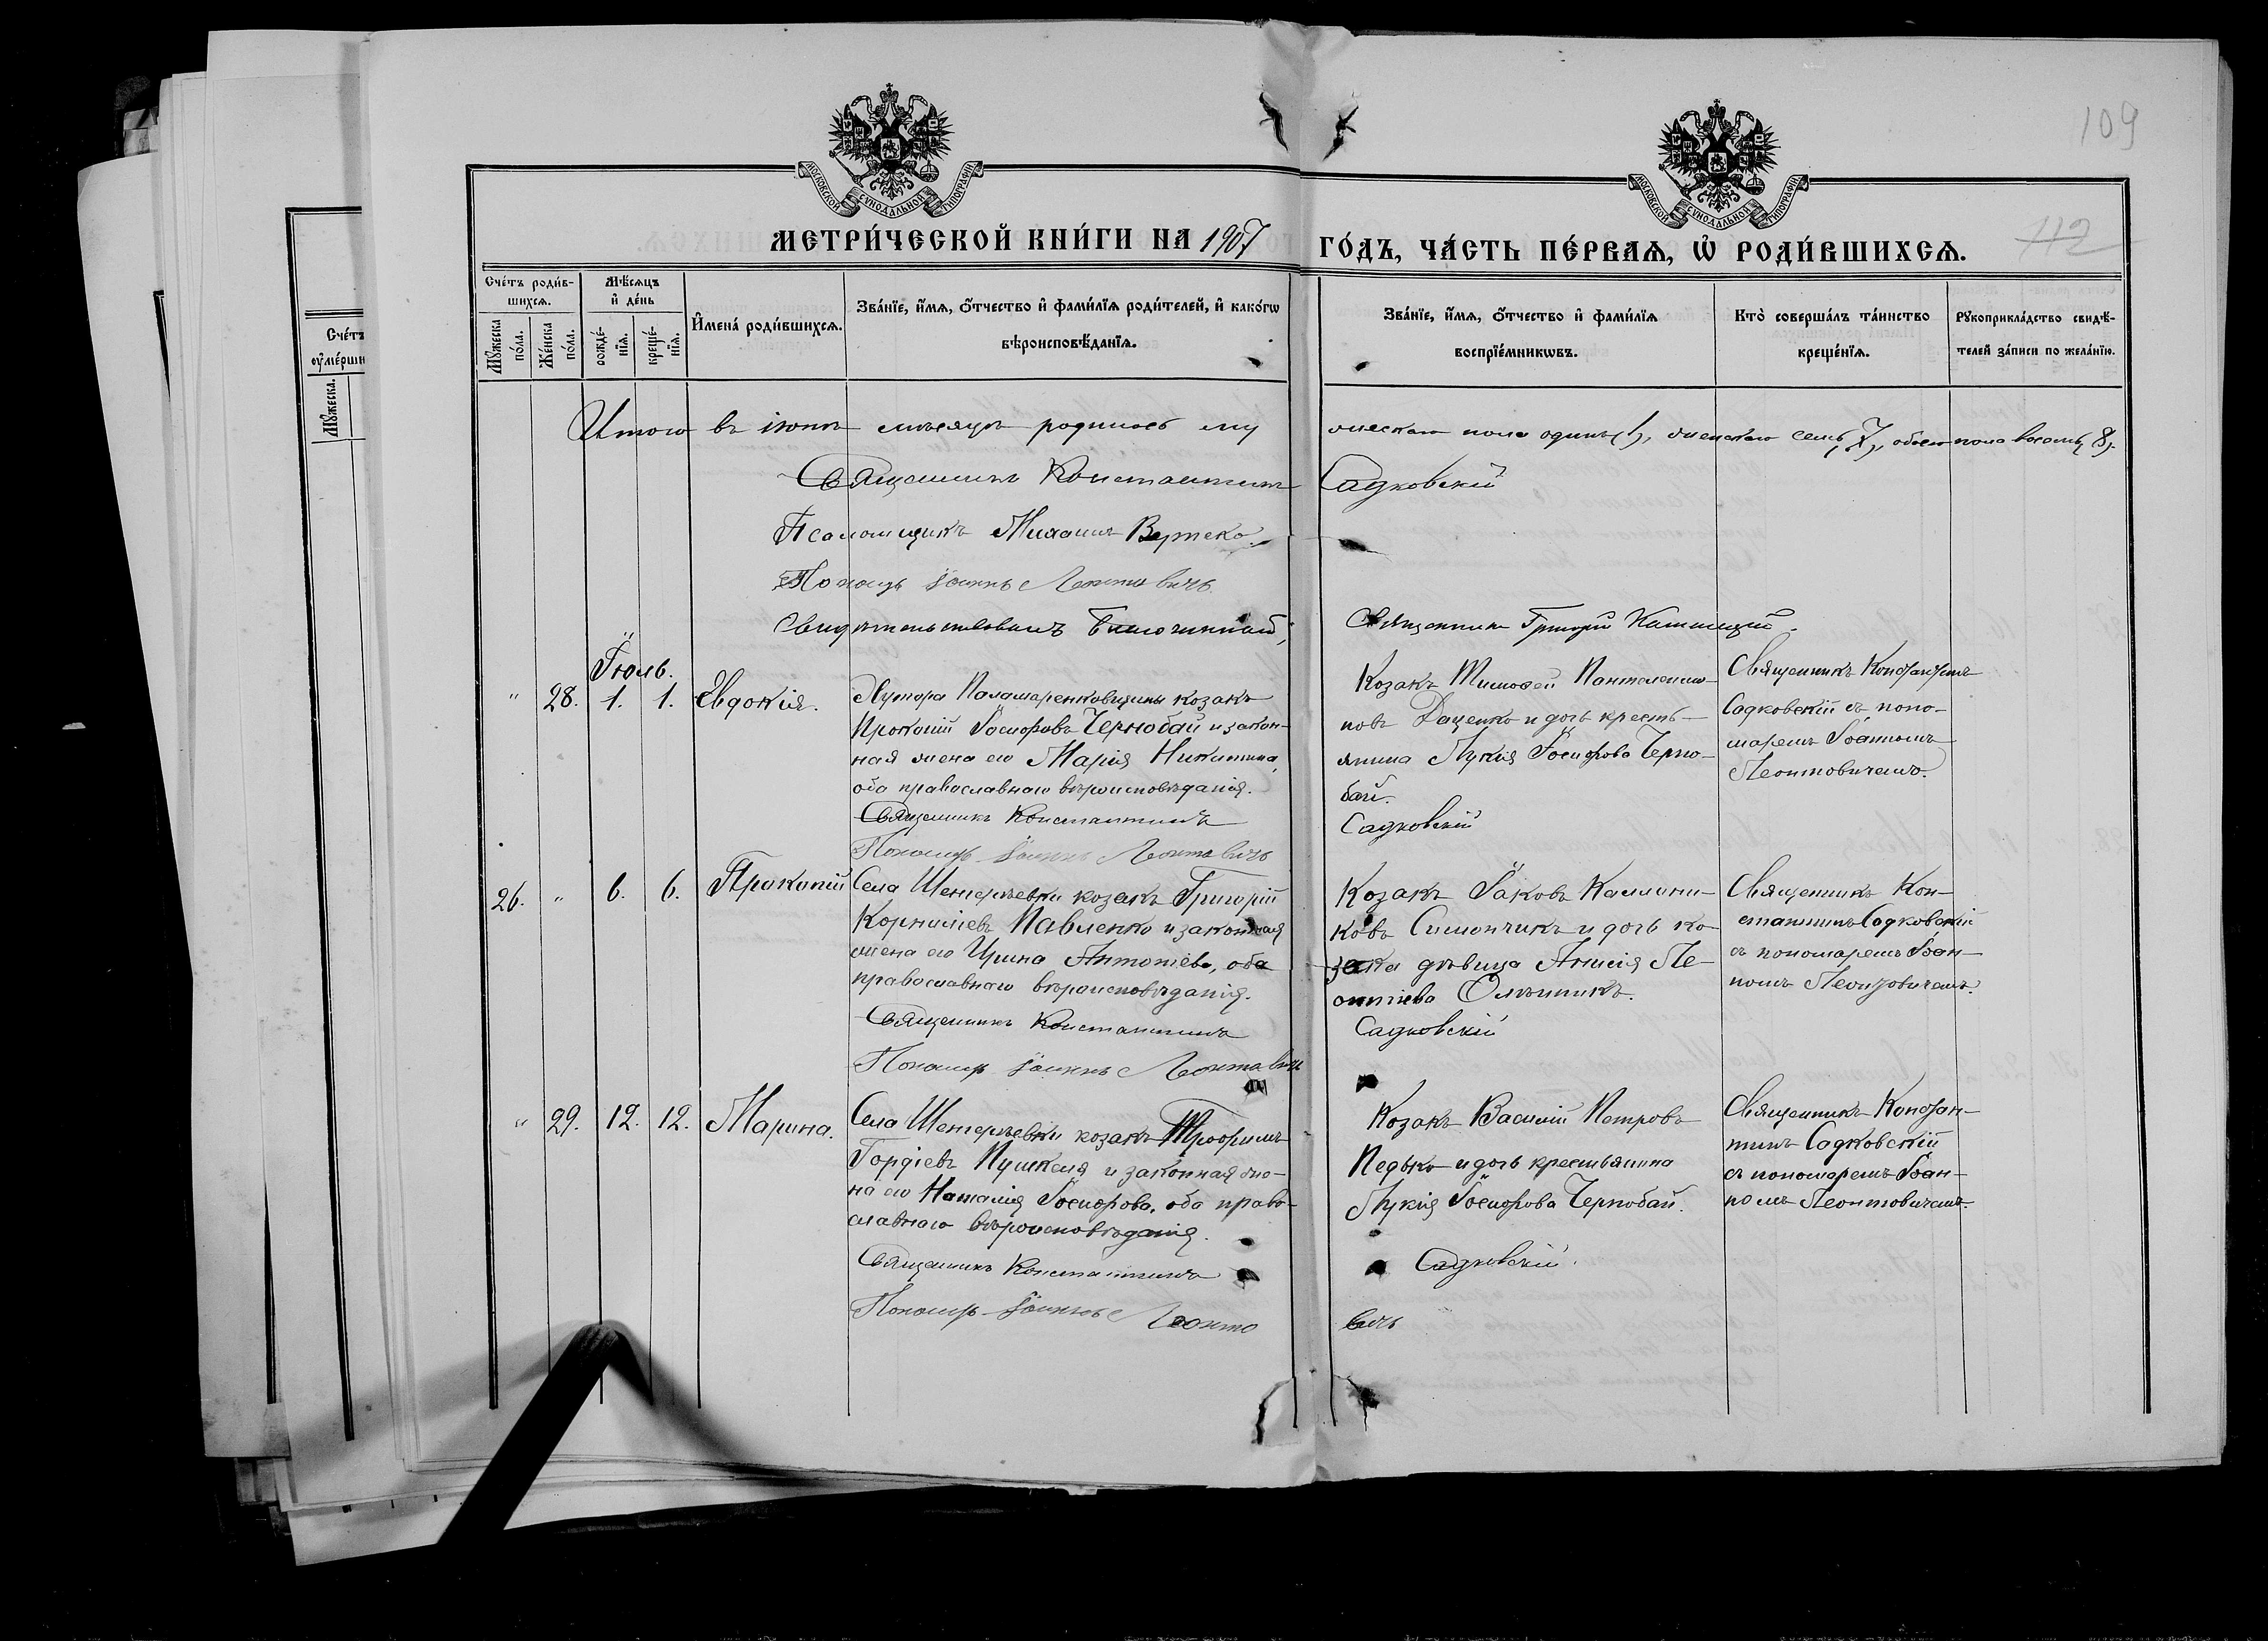 109
112
МОСКОВСКОЙ СѴНОДАЛЬНОЙ ТИПОГРАФІИ
МОСКОВСКОЙ СѴНОДАЛЬНОЙ ТИПОГРАФІИ
МЕТРИ́ЧЕСКОЙ КНИ́ГИ НА 1907 ГО́ДЪ, ЧА́СТЬ ПЕ́РВАѦ, Ѡ҆ РОДИ́ВШИХСѦ.
Сче́тъ роди́в-
шихсѧ.
Мꙋ́жеска по́ла.
Же́нска по́ла.
Мѣ́сѧцъ
и҆ де́нь
рожде́-
нїѧ.
креще́-
нїѧ.
И҆мена̀ роди́вшихсѧ.
Зва́нїе, и҆́мѧ, ѻ҆́тчество и҆ фами́лїѧ роди́телей, и҆ како́гѡ
вѣроисповѣ́данїѧ.
Зва́нїе, и҆́мѧ, ѻ҆́тчество и҆ фами́лїѧ
воспрїе́мникѡвъ.
Кто̀ соверша́лъ та́инство
креще́нїѧ.
Рꙋкоприкла́дство свидѣ́-
телей за́писи по жела́нїю.
Сче́тъ
ᲂу҆ме́рши
Мꙋ́жеска.
Итого въ іюнѣ мѣсяцѣ родилось му
жескаго пола одинъ (1), женскаго семь (7), обоего пола восемь (8).
Священникъ Константинъ Садковскій
Псаломщикъ Михаилъ
Пономарь Іоаннъ Леонтовичъ
Свидѣтельствовалъ Благочинный,
Священникъ Григорій
Іюль.
" 28. 1. 1. Евдокія.
Хутора Паламаренковщины козакъ
Прокопій Іосифовъ Чернобай и закон-
ная жена его Марія Никитина,
оба православнаго вѣроисповѣданія.
Священникъ Константинъ
Пономарь Іоаннъ Леонтовичъ
Козакъ Тимофей Пантелеимо-
новъ Даценко и дочь кресть-
янина Лукія Іосифова Черно-
бай.
Садковскій
Священникъ Константинъ
Садковскій съ поно-
маремъ Іоанномъ
Леонтовичемъ.
26. " 6. 6. Прокопій
Села Шенгерѣевки козакъ Григорій
Корниліевъ Павленко и законная
жена его Ирина Антоніева, оба
православнаго вѣроисповѣданія.
Священникъ Константинъ
Пономарь Іоаннъ Леонтовичъ
Козакъ Іаковъ Каллини-
ковъ Симончикъ и дочь ко-
зака дѣвица Анисія Ле-
онтіева Олѣйникъ.
Садковскій
Священникъ Кон-
стантинъ Садковскій
съ пономаремъ Іоан-
номъ Леонтовичемъ.
" 29. 12. 12. Марина.
Села Шенгерѣевки козакъ Трофимъ
Гордіевъ Пушкеля и законная же-
на его Наталія Іосифова, оба право-
славнаго вѣроисповѣданія.
Священникъ Константинъ
Пономарь Іоаннъ Леонто
Козакъ Василій Петровъ
Педько и дочь крестьянина
Лукія Іосифова Чернобай.
Садковскій.
вичъ
Священникъ Констан-
тинъ Садковскій
съ пономаремъ Іоан-
номъ Леонтовичемъ.